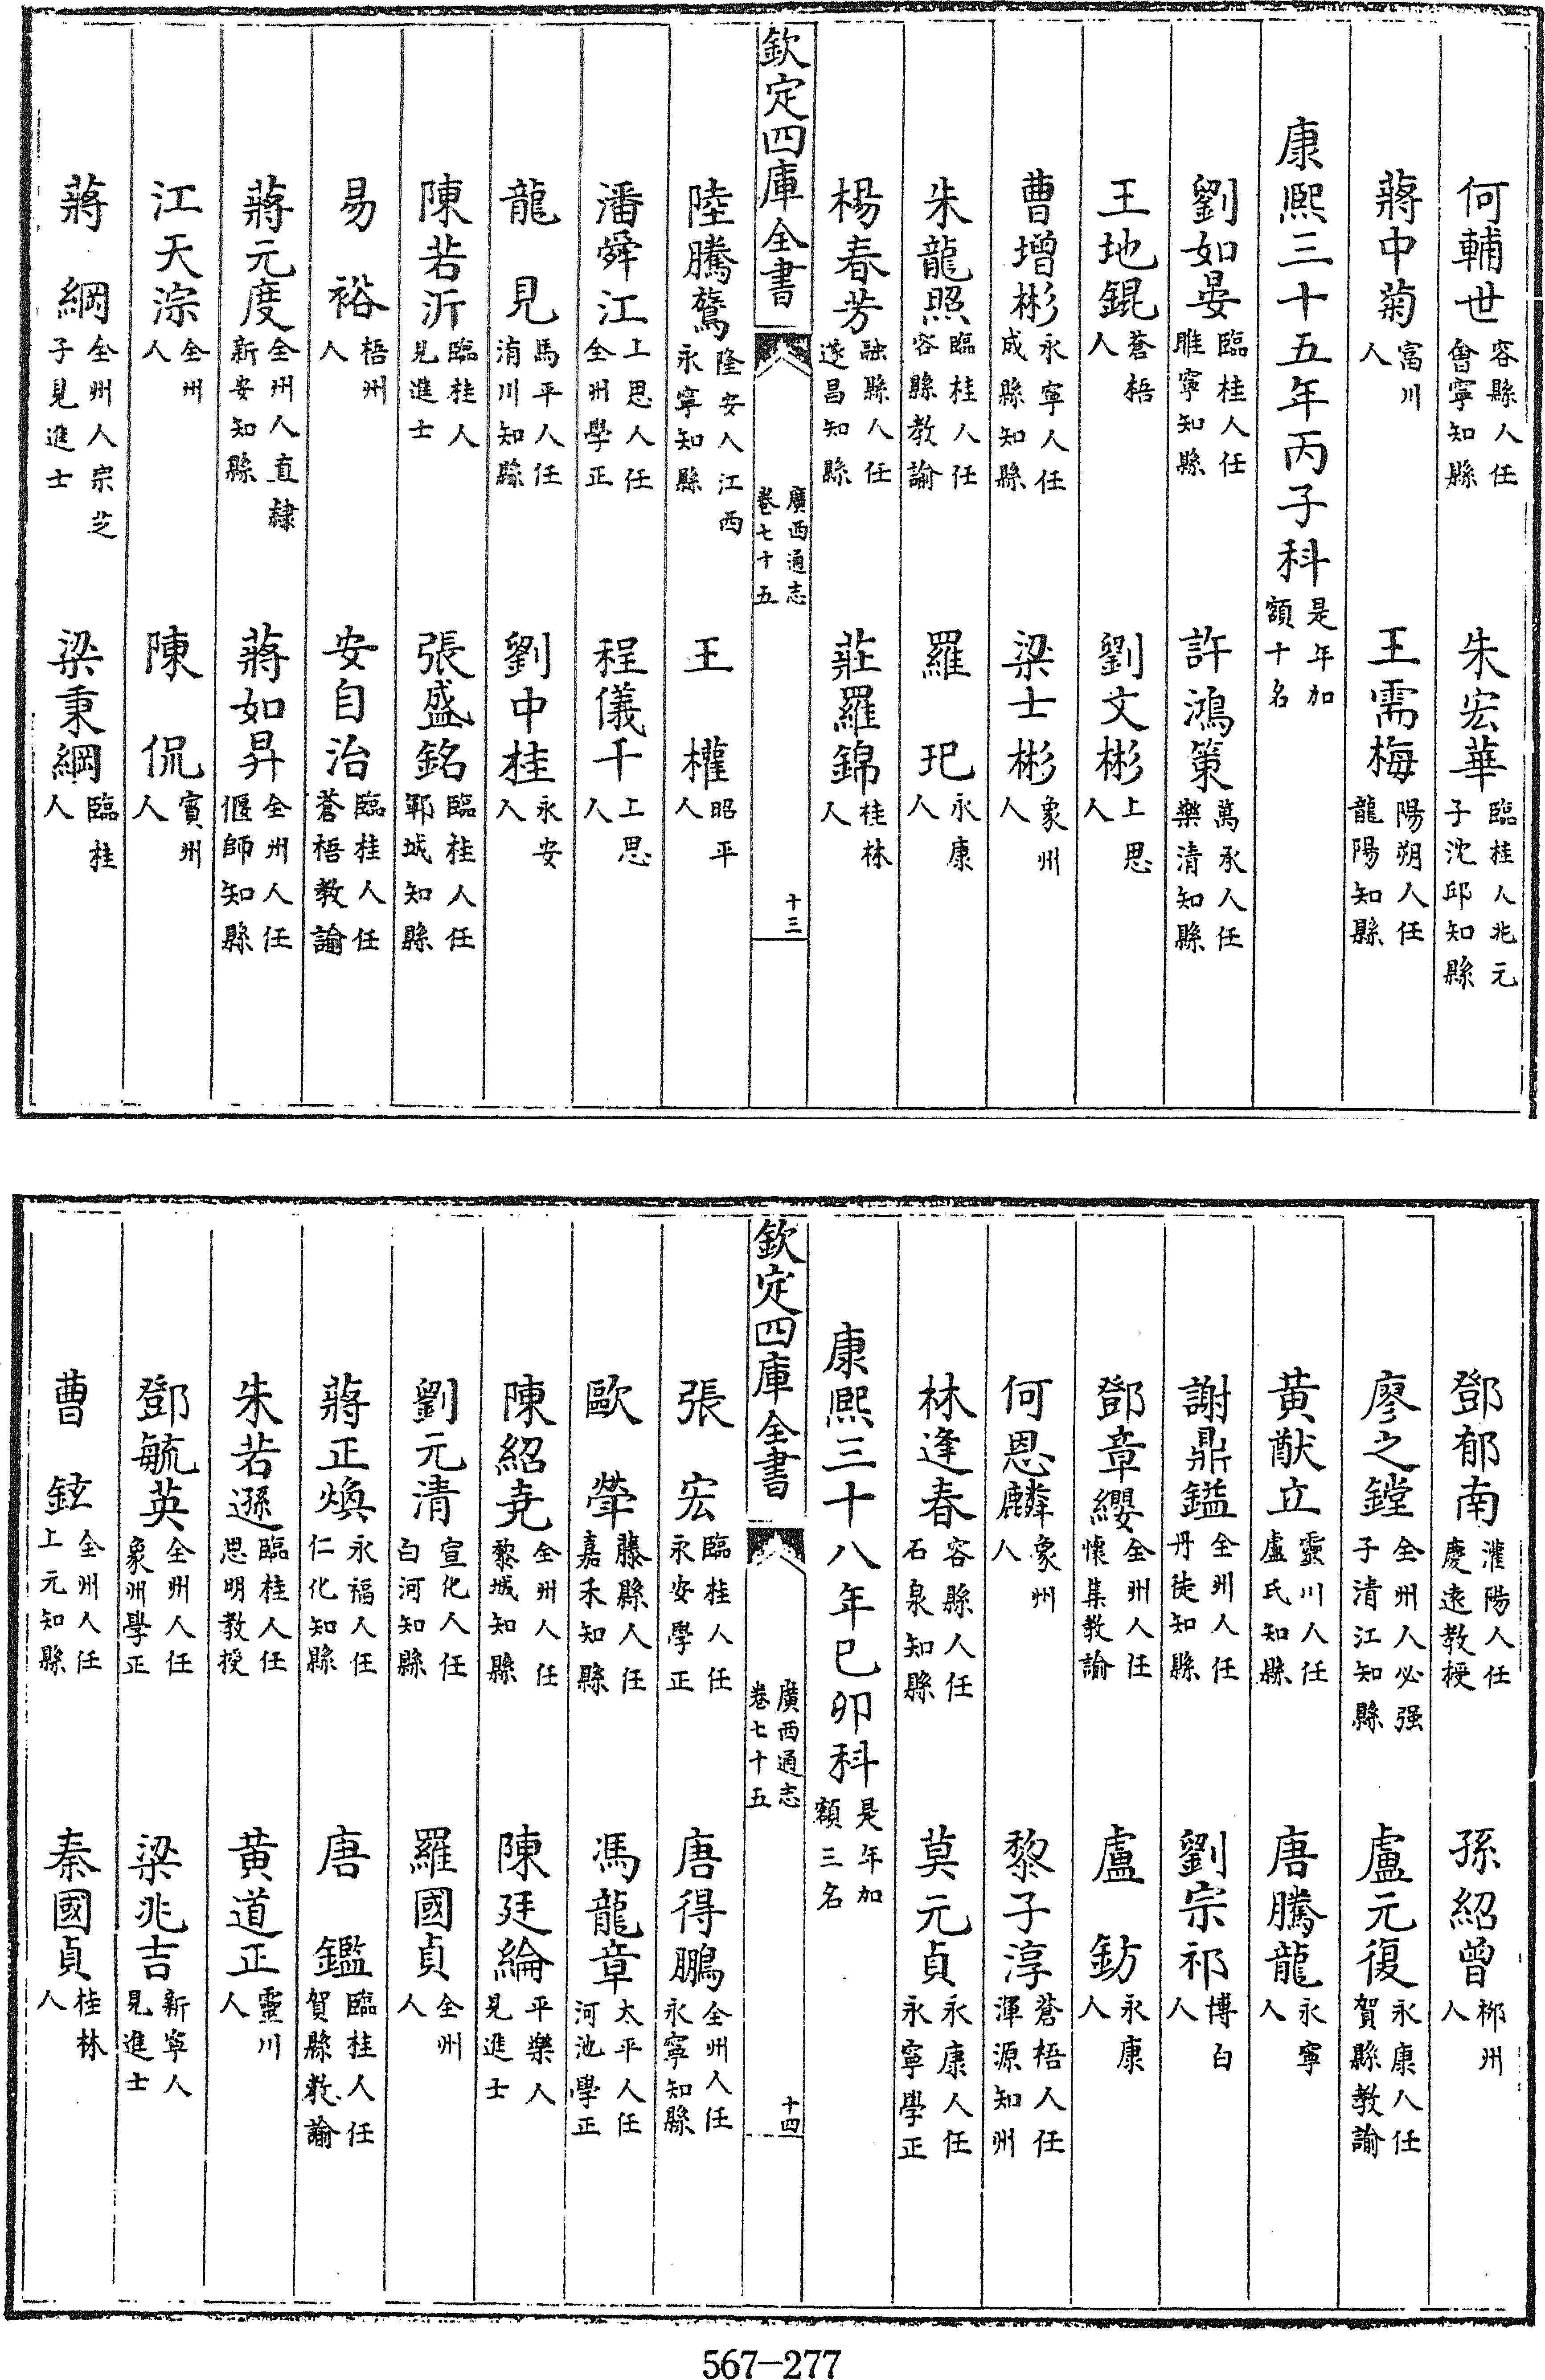 何輔世容縣人任會寧知縣　朱宏華臨桂人兆元子沈邱知縣
蔣中菊富川人　王需梅陽朔人任龍陽知縣
康熙三十五年丙子科是年加額十名
劉如晏臨桂人任睢寧知縣　許鴻策萬承人任樂清知縣
王地錕蒼梧人　劉文彬上思人
曹增彬永寧人任成縣知縣　梁士彬象州人
朱龍照臨桂人任容縣教諭　羅玘永康人
楊春芳融縣人任遂昌知縣　莊羅錦桂林人
欽定四庫全書　廣西通志卷七十五　十三
陸騰鶩隆安人江西永寧知縣　王權昭平人
潘舜江上思人任全州學正　程儀千上思人
龍見馬平人任洧川知縣　劉中桂永安人
陳若沂臨桂人見進士　張盛銘臨桂人任鄆城知縣
易裕梧州人　安自治臨桂人任蒼梧教諭
蔣元度全州人直隸新安知縣　蔣如昇全州人任偃師知縣
江天淙全州人　陳侃賓州人
蔣綱全州人宗芝子見進士　梁秉綱臨桂人
鄧郁南灌陽人任慶遠教授　孫紹曾柳州人
廖之鏜全州人必强子清江知縣　盧元復永康人任賀縣教諭
黄猷立靈川人任盧氏知縣　唐騰龍永寧人
謝鼎鎰全州人任丹徒知縣　劉宗祁博白人
鄧章纓全州人任懷集教諭　盧鈁永康人
何恩麟象州人　黎子淳蒼梧人任渾源知州
林逢春容縣人任石泉知縣　莫元貞永康人任永寧學正
康熙三十八年己卯科是年加額三名
欽定四庫全書　廣西通志卷七十五　十四
張宏臨桂人任永安學正　唐得鵬全州人任永寧知縣
歐犖藤縣人任嘉禾知縣　馮龍章太平人任河池學正
陳紹堯全州人任黎城知縣　陳廷綸平樂人見進士
劉元清宣化人任白河知縣　羅國貞全州人
蔣正煥永福人任仁化知縣　唐鑑臨桂人任賀縣教諭
朱若遜臨桂人任思明教授　黄道正靈川人
鄧毓英全州人任象州學正　梁兆吉新寧人見進士
曹鉉全州人任上元知縣　秦國貞桂林人
567-277